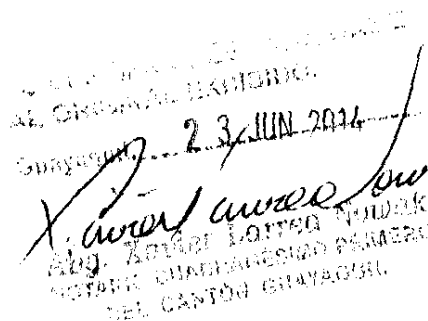 AL ORIGINAL EXHIBIDO.
Guayaquil, 23 JUN 2014
Abg. Xavier Larrea Nowak
NOTARIO CUADRAGESIMO PRIMERO
DEL CANTÓN GUAYAQUIL